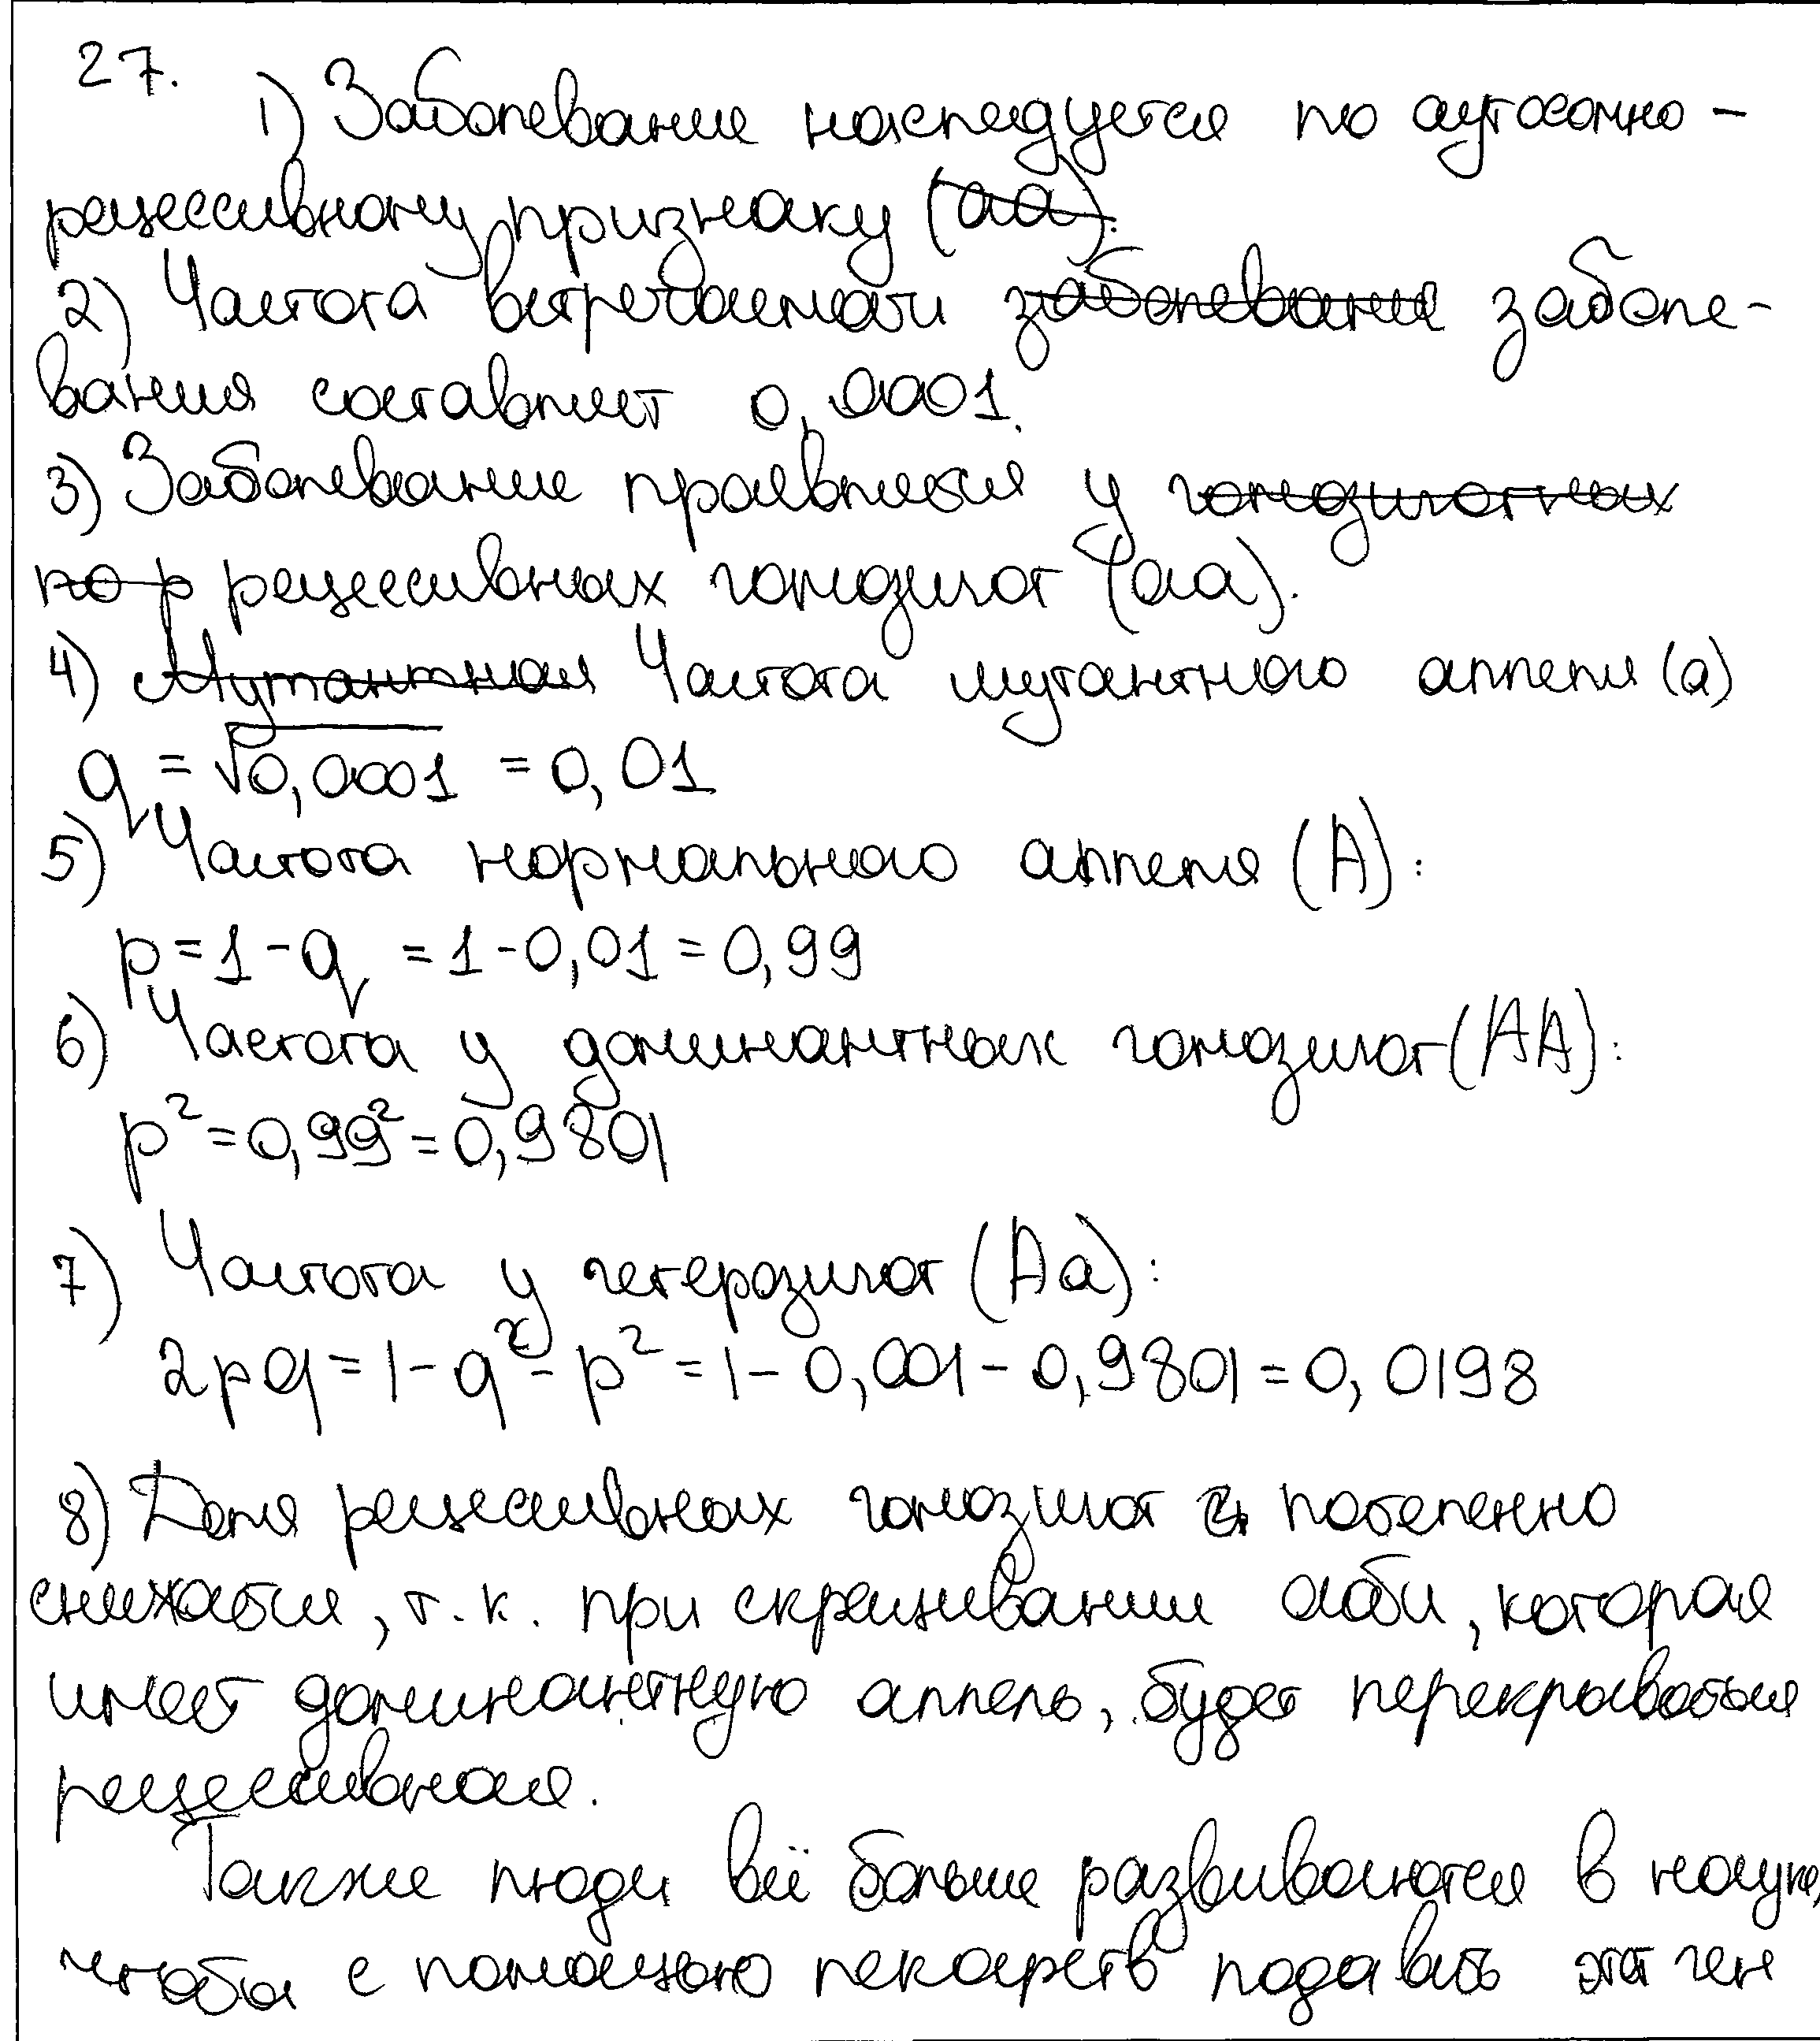 27.
1) Заболевание наследуется по аутосомно-
рецессивному признаку (аа).
2) Частота встречаемости заболевание заболе-
вания составляет 0,0001.
3) Заболевание проявляется у гомозиготных
по р рецессивных гомозигот (аа).
4) Мутантная Частота мутантного аллеля (а)
q = √0,0001 = 0,01
5) Частота нормального аллеля (А):
p = 1 - q = 1 - 0,01 = 0,99
6) Частота у доминантных гомозигот (АА):
p² = 0,99² = 0,9801
7) Частота у гетерозигот (Аа):
2pq = 1 - q² - p² = 1 - 0,001 - 0,9801 = 0,0198
8) Доля рецессивных гомозигот постепенно
снижается, т.к. при скрещивании особи, которая
имеет доминантную аллель, будет перекрываться
рецессивная.
Также люди всё больше развиваются в науке,
чтобы с помощью лекарств подавить этот ген